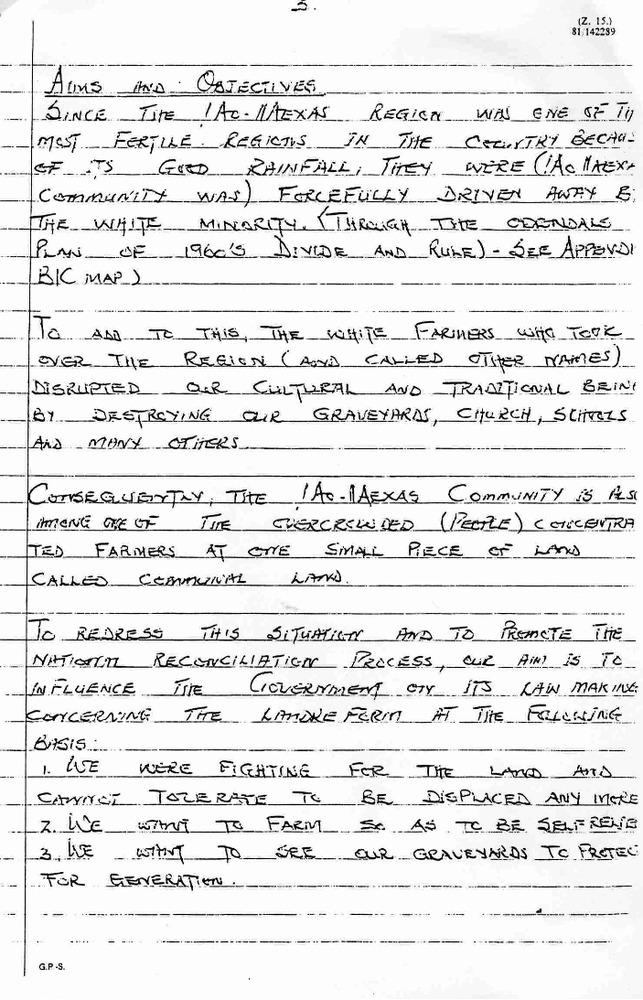 3.
(Z. 15.)
81/142289
AIMS AND OBJECTIVES
SINCE THE !AO-//AEXAS REGION WAS ONE OF TH
MOST FERTILE REGIONS IN THE COUNTRY BECAU
OF ITS GOOD RAINFALL, THEY WERE (!AO //AEXA
COMMUNITY WAS) FORCEFULLY DRIVEN AWAY B
THE WHITE MINORITY. (THROUGH THE ODENDALS
PLAN OF 1960'S DIVIDE AND RULE) - SEE APPENDI
B/C MAP)
TO ADD TO THIS, THE WHITE FARMERS WHO TOOK
OVER THE REGION (AND CALLED OTHER NAMES)
DISRUPTED OUR CULTURAL AND TRADITIONAL BEIN
BY DESTROYING OUR GRAVEYARDS, CHURCH, SCHOOLS
AND MANY OTHERS
CONSEQUENTLY, THE !AO-//AEXAS COMMUNITY IS ALSO
AMONG ONE OF THE OVERCROWDED (PEOPLE) CONCENTRA
TED FARMERS AT ONE SMALL PIECE OF LAND
CALLED COMMUNAL LAND.
TO REDRESS THIS SITUATION AND TO PROMOTE THE
NATIONAL RECONCILIATION PROCESS, OUR AIM IS TO
INFLUENCE THE GOVERNMENT ON ITS LAW MAKING
CONCERNING THE LANDREFORM AT THE FOLLOWING
BASIS:
1. WE WERE FIGHTING FOR THE LAND AND
CANNOT TOLERATE TO BE DISPLACED ANY MORE
2. WE WANT TO FARM SO AS TO BE SELF RELIE
3. WE WANT TO SEE OUR GRAVEYARDS TO PROTEC
FOR GENERATION.
G.P.-S.